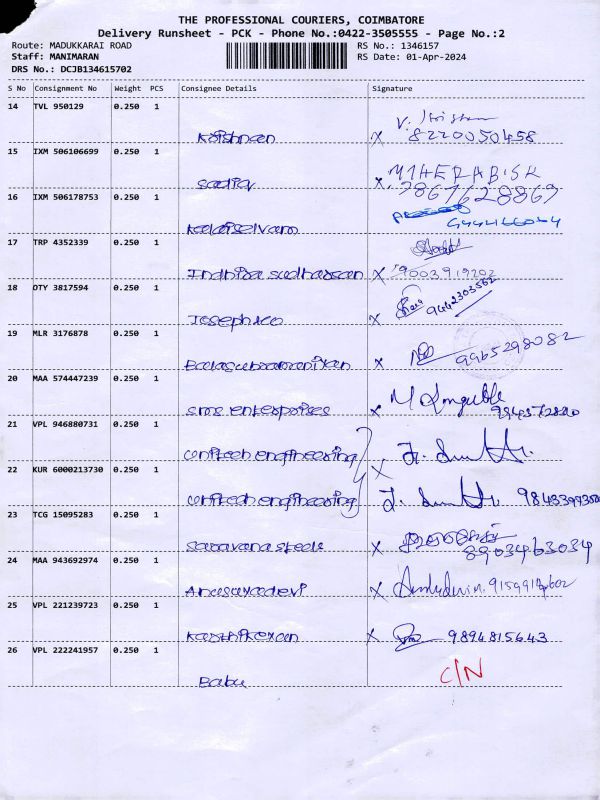 THE PROFESSIONAL COURIERS, COIMBATORE
Delivery Runsheet - PCK - Phone No.:0422-3505555 - Page No.:2
Route: MADUKKARAI ROAD
Staff: MANIMARAN
DRS No.: DCJB134615702
RS No.: 1346157
RS Date: 01-Apr-2024
S No Consignment No Weight PCS Consignee Details Signature
14 TVL 950129 0.250 1
Krishnan X 8220050458
15 IXM 506106699 0.250 1
Sadiq X
16 IXM 506178753 0.250 1
Kalaiselvam
17 TRP 4352339 0.250 1
Indhira Sudharsan X 9003919202
18 DTY 3817594 0.250 1
Joseph Leo X 9442303562
19 MLR 3176878 0.250 1
Balasubramaniyan X 9965298082
20 MAA 574447239 0.250 1
SMS Enterprises X
21 VPL 946880731 0.250 1
Unitech Engineering X
22 KUR 6000213730 0.250 1
Unitech Engineering
23 TCG 15095283 0.250 1
Saravana Steels X 8903463034
24 MAA 943692974 0.250 1
Anusayadevi X
25 VPL 221239723 0.250 1
Karthikeyan X 9894815643
26 VPL 222241957 0.250 1
Babu C/N